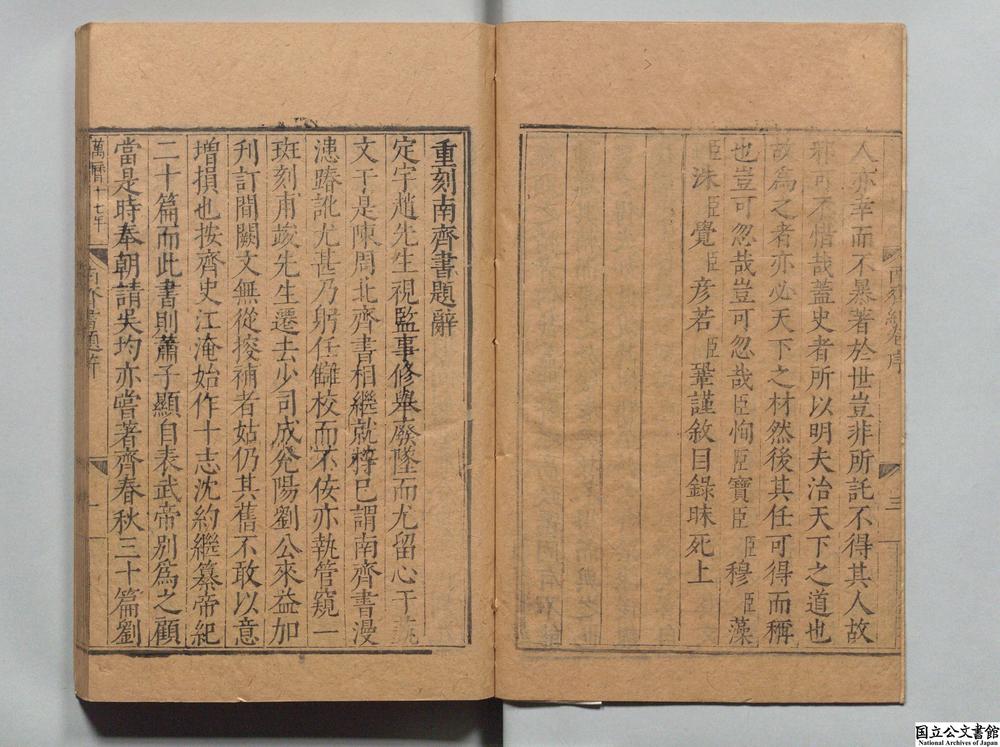 人亦幸而不暴著於世豈非所託不得其人故
邪可不惜哉蓋史者所以明夫治天下之道也
故為之者亦必天下之材然後其任可得而稱
也豈可忽哉豈可忽哉臣恂臣寶臣臣穆臣藻
臣洙臣覺臣彥若臣鞏謹敘目錄昧死上
重刻南齊書題辭
定宇趙先生視監事修舉廢墜而尤留心于藝
文于是陳周北齊書相繼就梓已謂南齊書漫
漶踳訛尤甚乃躬任讎校而不佞亦執管窺一
斑刻甫竣先生遷去少司成兗陽劉公來益加
刋訂間闕文無從搜補者姑仍其舊不敢以意
增損也按齊史江淹始作十志沈約繼纂帝紀
二十篇而此書則蕭子顯自表武帝別為之顧
當是時奉朝請吳均亦嘗著齊春秋三十篇劉
萬曆十七年
南齊書題辭
一
序
三
国立公文書館
National Archives of Japan